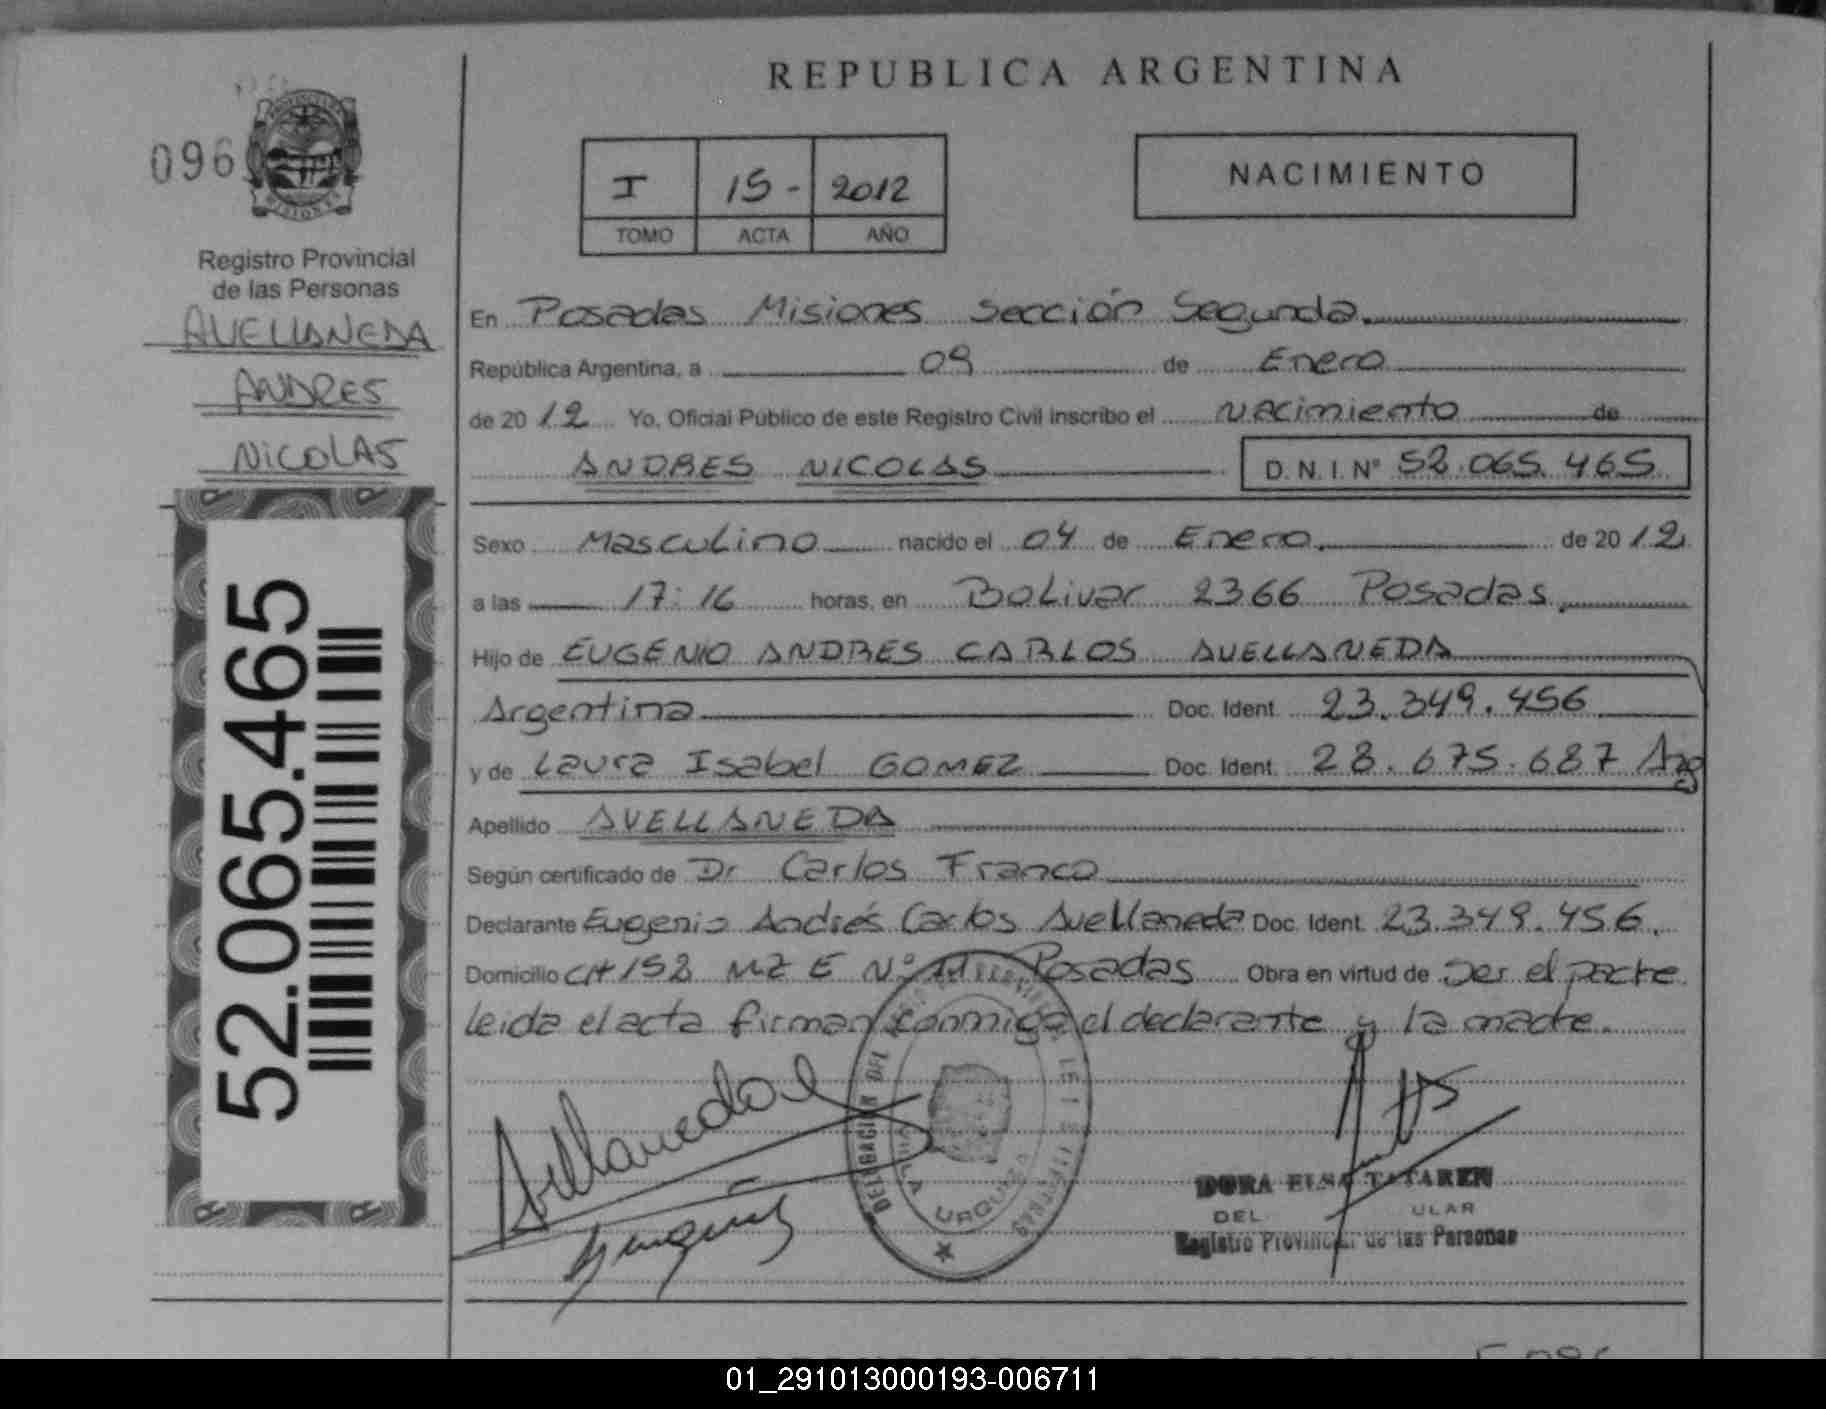 REPUBLICA ARGENTINA
096
PROVINCIA
MISIONES
Registro Provincial
de las Personas
AVELLANEDA
ANDRES
NICOLAS
52.065.465
I 15 - 2012
TOMO ACTA AÑO
NACIMIENTO
En Posadas Misiones Sección Segunda.
República Argentina, a 09 de Enero
de 20 12 Yo, Oficial Público de este Registro Civil inscribo el nacimiento de
ANDRES NICOLAS D.N.I. Nº 52.065.465
Sexo Masculino nacido el 04 de Enero. de 20 12
a las 17:16 horas, en Bolivar 2366 Posadas.
Hijo de EUGENIO ANDRES CARLOS AVELLANEDA
Argentina Doc. Ident. 23.349.456
y de Laura Isabel GOMEZ Doc. Ident. 28.675.687 Arg
Apellido AVELLANEDA
Según certificado de Dr Carlos Franco
Declarante Eugenio Andrés Carlos Avellaneda Doc. Ident. 23.349.456.
Domicilio CH 152 MZ E Nº Posadas Obra en virtud de ser el padre
leida el acta firman conmigo el declarante y la madre.
Avellaneda
DELEGACION DEL
VILLA URQUIZA
DORA ELSA TATAREN
DEL ULAR
Registro Provincial de las Personas
01_291013000193-006711